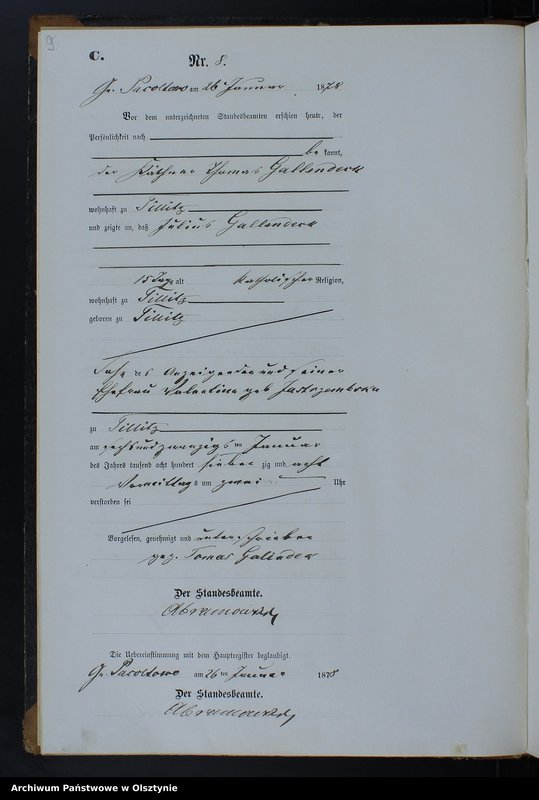 9
C.
Nr. 8.
Gr. Pacoltowo am 26 Januar 1878
Vor dem unterzeichneten Standesbeamten erschien heute, der
Persönlichkeit nach
be kannt,
der Käthner Thomas Gallendeck
wohnhaft zu Tillitz
und zeigte an, daß Julius Gallendeck
15 Tage alt katholischer Religion,
wohnhaft zu Tillitz
geboren zu Tillitz
Sohn des Anzeigenden und seiner
Ehefrau Valentine geb
zu Tillitz
am sechsundzwanzigs ten Januar
des Jahres tausend acht hundert sieben zig und acht
Vormittags um zwei Uhr
verstorben sei
Vorgelesen, genehmigt und unterschrieben
gez. Tomas Galindek
Der Standesbeamte.
Abramowski
Die Uebereinstimmung mit dem Hauptregister beglaubigt.
Gr. Pacoltowo am 26 ten Januar 1878
Der Standesbeamte.
Abramowski
Archiwum Państwowe w Olsztynie